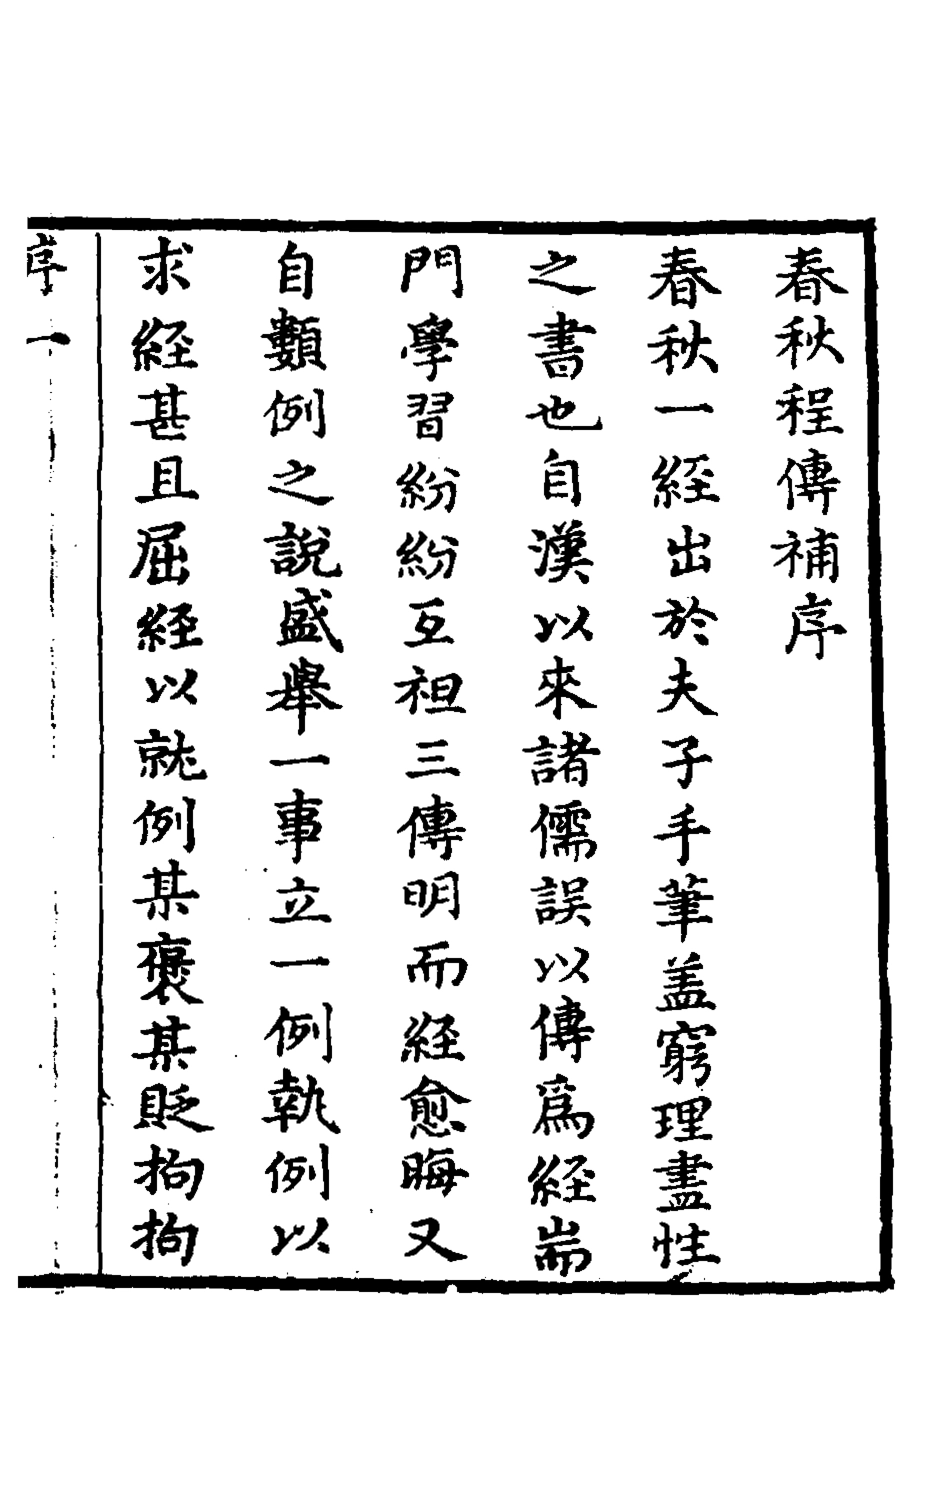 春秋程傳補序
春秋一經出於夫子手筆盖窮理盡性
之書也自漢以來諸儒誤以傳爲経耑
門學習紛紛互袒三傳明而経愈晦又
自數例之說盛舉一事立一例執例以
求経甚且屈経以就例某襃某貶拘拘
序 一